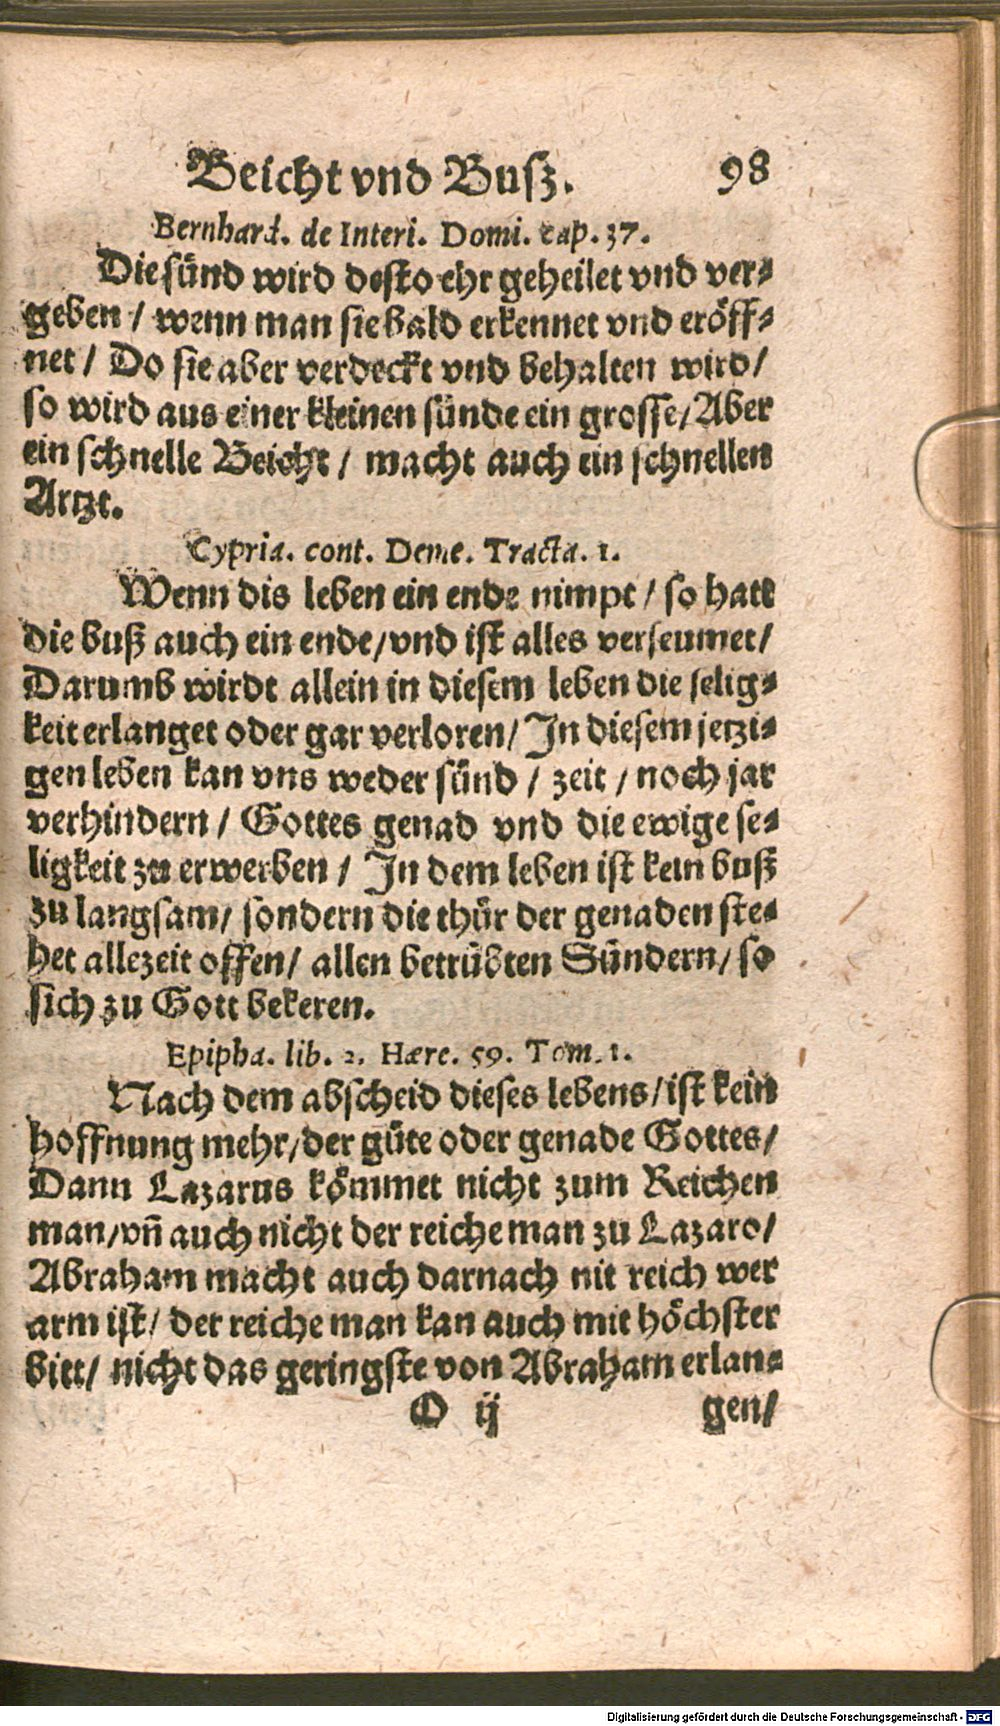 Beicht vnd Busz. 98
Bernhard. de Interi. Domi. cap. 37.
Die sünd wird desto ehr geheilet vnd ver-
geben / wenn man sie bald erkennet vnd eröff-
net / Do sie aber verdeckt vnd behalten wird /
so wird aus einer kleinen sünde ein grosse / Aber
ein schnelle Beicht / macht auch ein schnellen
Artzt.
Cypria. cont. Deme. Tracta. 1.
Wenn dis leben ein ende nimpt / so hatt
die buß auch ein ende / vnd ist alles verseumet /
Darumb wirdt allein in diesem leben die selig-
keit erlanget oder gar verloren / In diesem jetzi-
gen leben kan vns weder sünd / zeit / noch jar
verhindern / Gottes genad vnd die ewige se-
ligkeit zu erwerben / In dem leben ist kein buß
zu langsam / sondern die thür der genaden ste-
het allezeit offen / allen betrübten Sündern / so
sich zu Gott bekeren.
Epipha. lib. 2. Hære. 59. Tom. 1.
Nach dem abscheid dieses lebens / ist kein
hoffnung mehr / der güte oder genade Gottes /
Dann Lazarus kömmet nicht zum Reichen
man / vñ auch nicht der reiche man zu Lazaro /
Abraham macht auch darnach nit reich wer
arm ist / der reiche man kan auch mit höchster
bitt / nicht das geringste von Abraham erlan-
O ij gen /
Digitalisierung gefördert durch die Deutsche Forschungsgemeinschaft - DFG